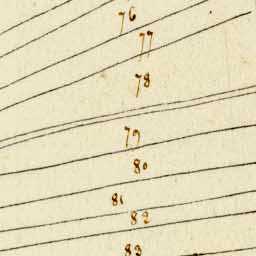 76
77
78
79
80
81
82
83